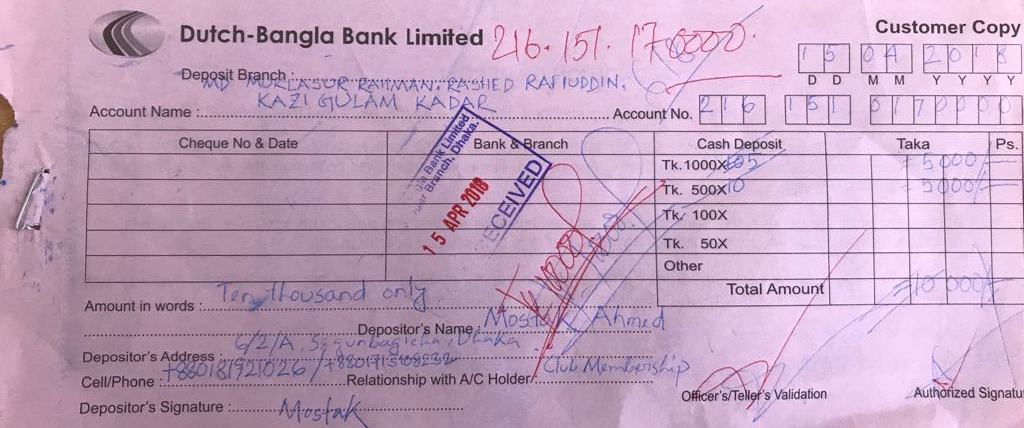 Dutch-Bangla Bank Limited 216.151.170000. Customer Copy
15 04 2018
DD MM YYYY
Deposit Branch :
MD MURLASUR RAHMAN, RASHED RAFIUDDIN,
KAZI GULAM KADAR
Account Name : Account No. 216 151 0170000
Cheque No & Date Bank & Branch Cash Deposit Taka Ps.
Tk. 1000X 5 5000/-
Tk. 500X 10 5000/-
Tk. 100X
Tk. 50X
Other
Total Amount 10000/-
Bank Limited
Branch, Dhaka.
15 APR 2018
RECEIVED
Amount in words : Ten thousand only
Depositor's Name : Mostak Ahmed
Depositor's Address : 6/2/A, Segunbagicha, Dhaka
Cell/Phone : Relationship with A/C Holder/ Club Membership
Depositor's Signature : Mostak
Officer's/Teller's Validation Authorized Signatu